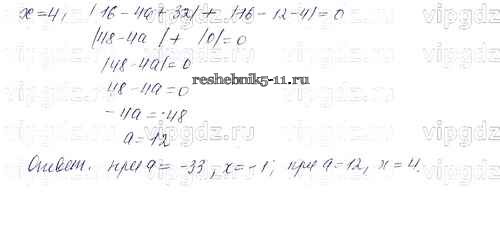 x=4, |16-4a+32|+|16-12-4|=0
|48-4a|+|0|=0
|48-4a|=0
48-4a=0
reshebnik5-11.ru
-4a=-48
a=12
Ответ. при a=-33, x=-1; при a=12, x=4.
vipgdz.ru
vipgdz.ru
vipgdz.ru
vipgdz.ru